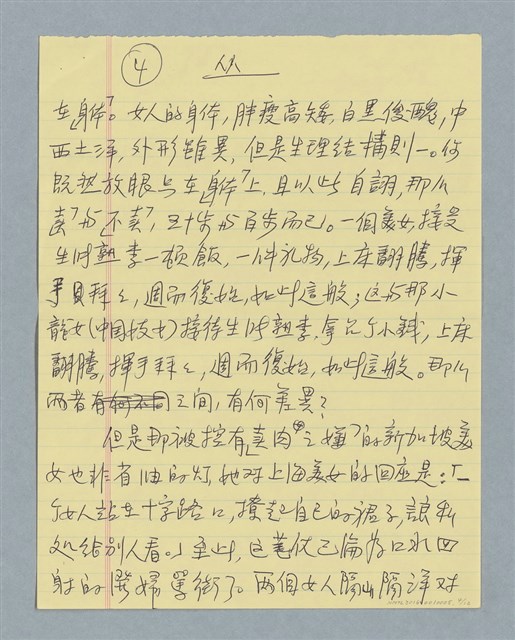 4
在身体」。女人的身体，胖瘦高矮，白黑俊醜，中
西土洋，外形雖異，但是生理结構則一。何
既然放眼与在「身体」上，且以此自詡，那么
「卖」与「不卖」，五十步与百步而已。一個美女，接受
生张熟李一顿飯，一件礼物，上床翻騰，揮
手拜々，週而復始，如此這般；这与那小
龍女（中国技女）接待生张熟李，拿几个小錢，上床
翻騰，揮手拜々，週而復始，如此這般。那么
两者之间，有何差異？
但是那被控有「卖肉之嫌」的新加坡美
女也非省油的灯，她对上海美女的回应是：「一
个女人站在十字路口，撩起自己的裙子，讓私
处给别人看。」至此，这笔仗已淪为口水四
射的潑婦罵街了。两個女人隔山隔洋对